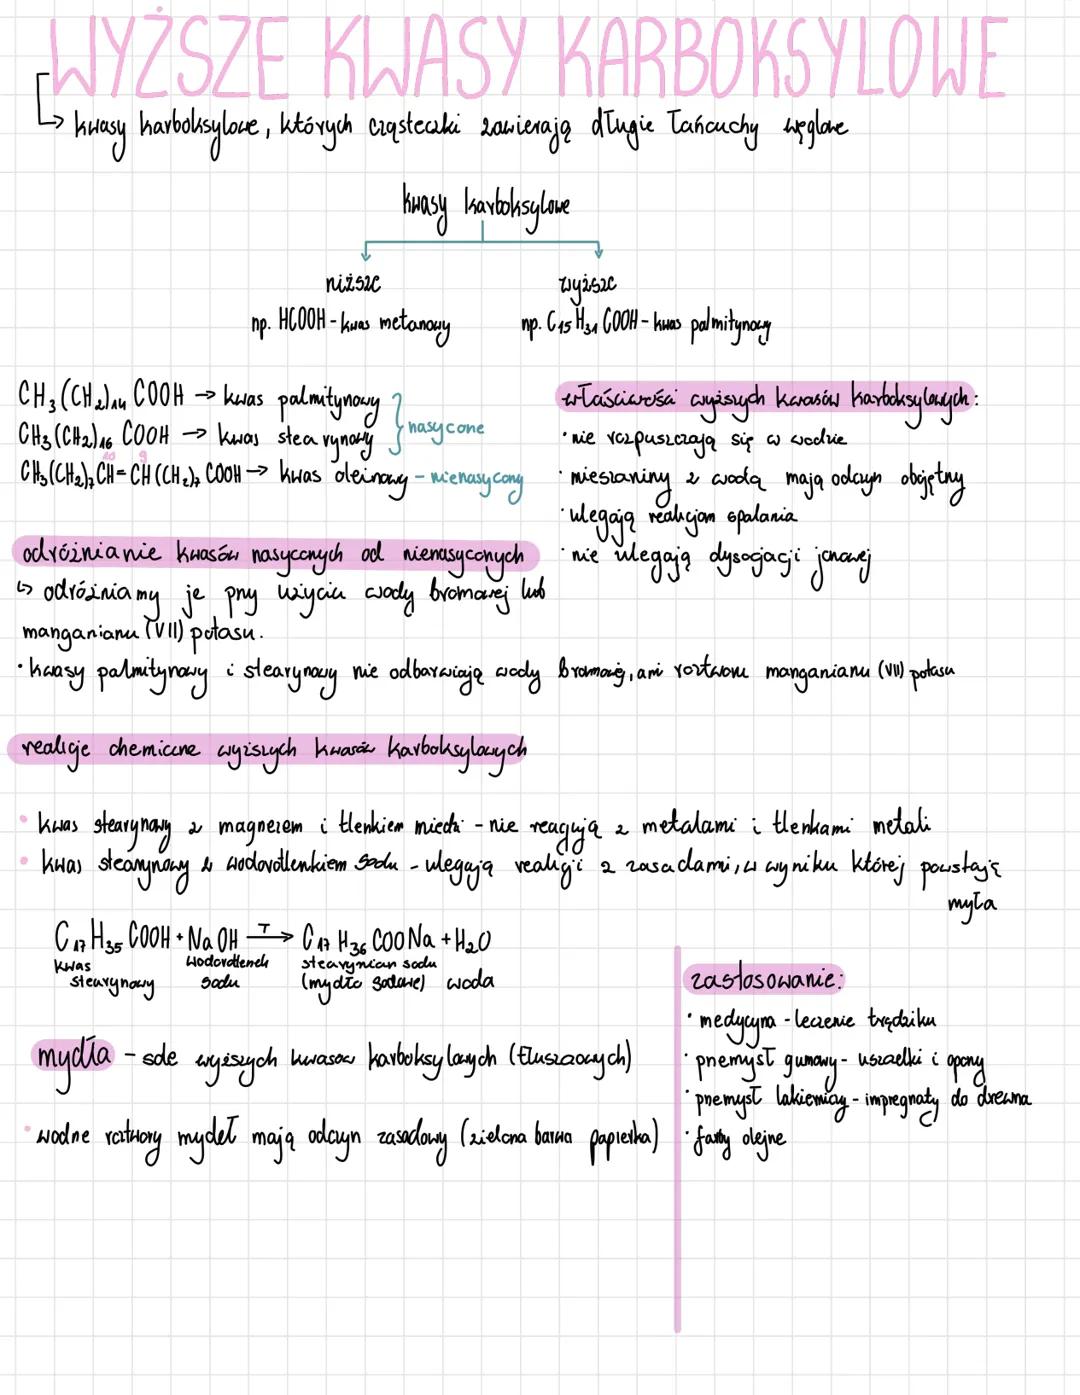 WYŻSZE KWASY KARBOKSYLOWE
↳ kwasy karboksylowe, których cząsteczki zawierają długie łańcuchy węglowe
kwasy karboksylowe
niższe
np. HCOOH - kwas metanowy
wyższe
np. C15H31COOH - kwas palmitynowy
CH3(CH2)14COOH → kwas palmitynowy
CH3(CH2)16COOH → kwas stearynowy
} nasycone
10 9
CH3(CH2)7CH=CH(CH2)7COOH → kwas oleinowy - nienasycony
właściwości wyższych kwasów karboksylowych:
· nie rozpuszczają się w wodzie
· mieszaniny z wodą mają odczyn obojętny
· ulegają reakcjom spalania
· nie ulegają dysocjacji jonowej
odróżnianie kwasów nasyconych od nienasyconych
↳ odróżniamy je przy użyciu wody bromowej lub
manganianu (VII) potasu.
· kwasy palmitynowy i stearynowy nie odbarwiają wody bromowej, ani roztworu manganianu (VII) potasu
reakcje chemiczne wyższych kwasów karboksylowych
• kwas stearynowy z magnezem i tlenkiem miedzi - nie reagują z metalami i tlenkami metali
• kwas stearynowy z wodorotlenkiem sodu - ulegają reakcji z zasadami, w wyniku której powstają
mydła
C17H35COOH + NaOH →T C17H36COONa + H2O
kwas stearynowy
wodorotlenek sodu
stearynian sodu (mydło sodowe)
woda
mydła - sole wyższych kwasów karboksylowych (tłuszczowych)
• wodne roztwory mydeł mają odczyn zasadowy (zielona barwa papierka)
zastosowanie:
· medycyna - leczenie trądziku
· przemysł gumowy - uszczelki i opony
· przemysł lakierniczy - impregnaty do drewna
· farby olejne